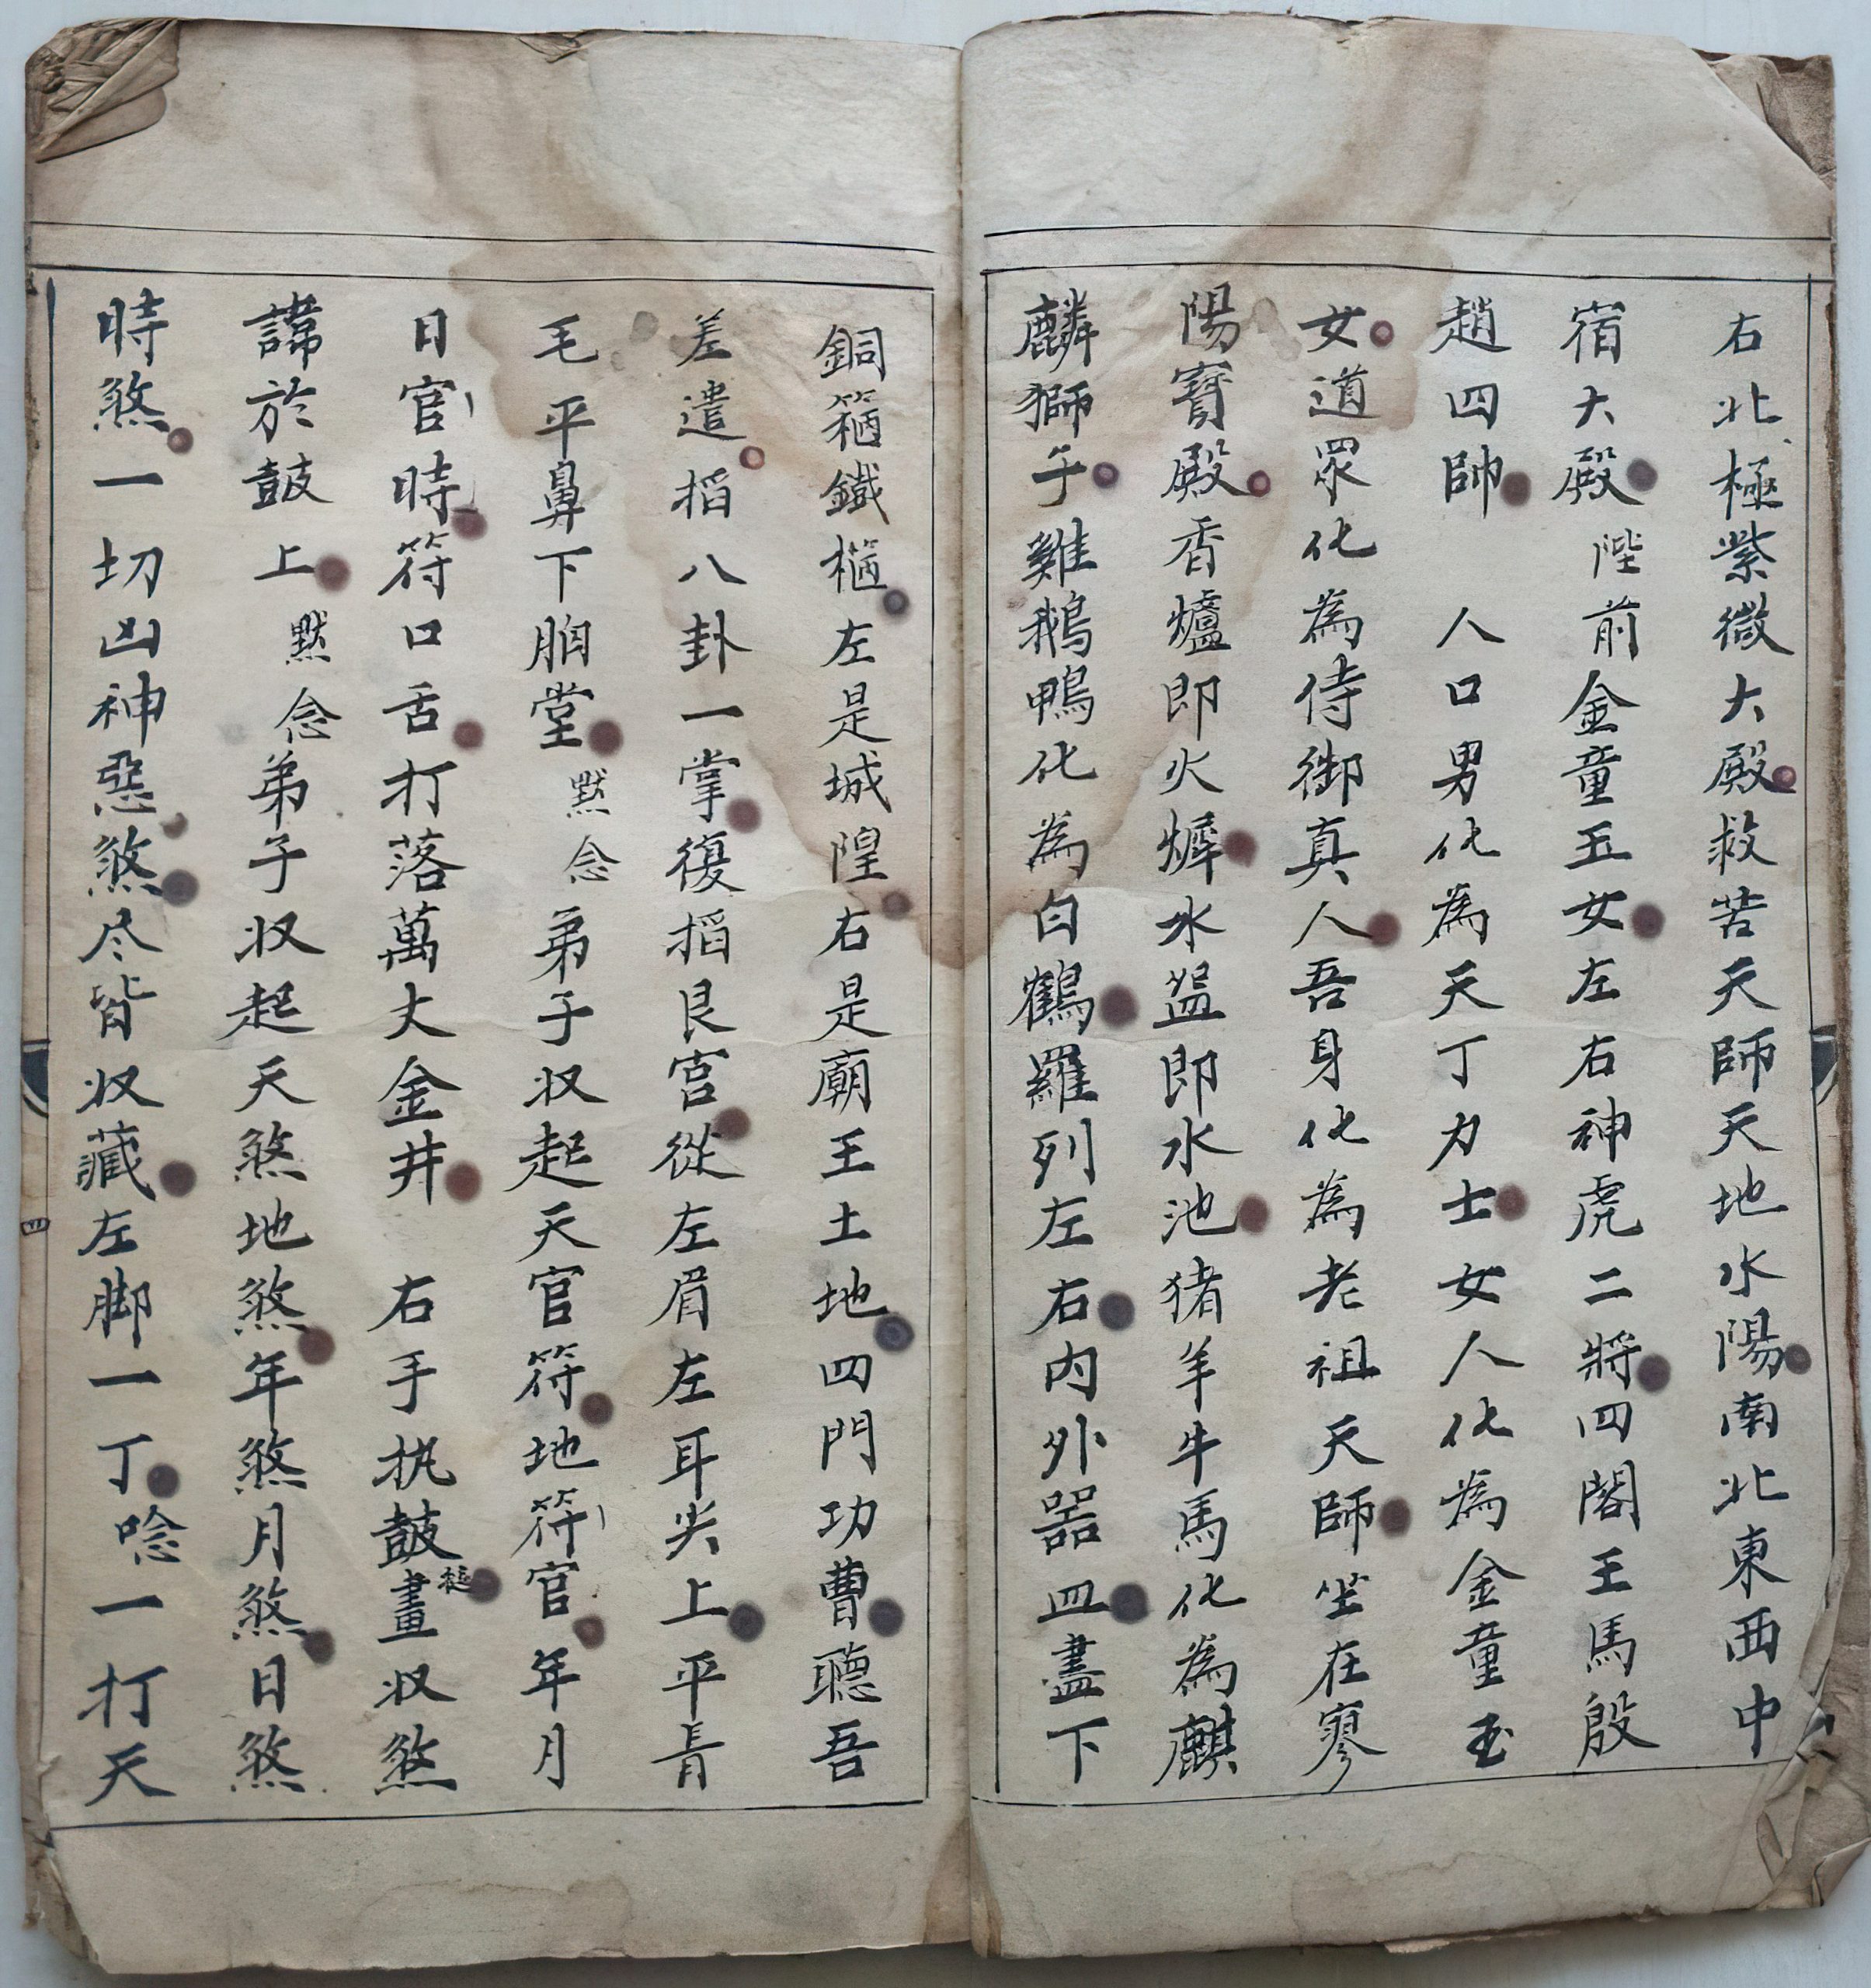 右北極紫微大殿救苦天師天地水陽南北東西中
宿大殿陛前金童玉女左右神虎二將四閣王馬殷
趙四帥　人口男化為天丁力士女人化為金童玉
女道眾化為侍御真人吾身化為老祖天師坐在寥
陽寶殿香爐即火爐水盆即水池猪羊牛馬化為麒
麟獅子雞鵝鴨化為白鶴羅列左右內外器皿盡下
銅箍鐵樞左是城隍右是廟王土地四門功曹聽吾
差遣掐八卦一掌復掐艮宮從左眉左耳尖上平青
毛平鼻下胭堂默念弟子收起天官符地符官年月
日官時符口舌打落萬丈金井　右手执鼓畫收煞
諱於鼓上默念弟子收起天煞地煞年煞月煞日煞
時煞一切凶神惡煞尽皆收藏左脚一丁唸一打天
四